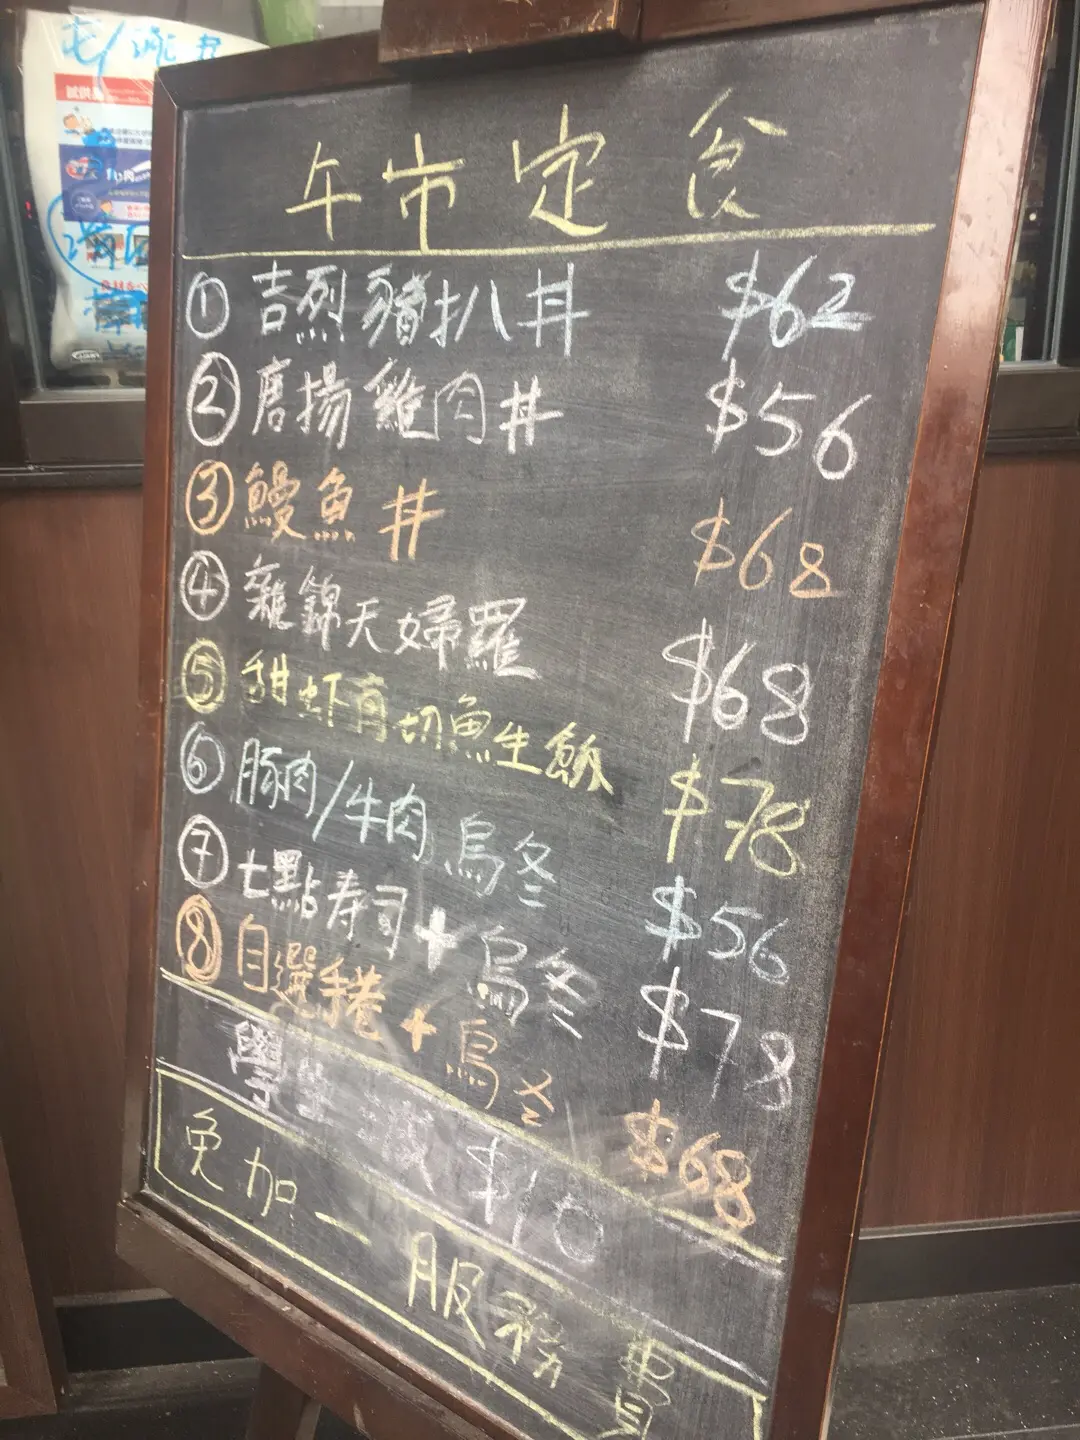 午市定食
① 吉列豬扒丼 $62
② 唐揚雞肉丼 $56
③ 鰻魚丼 $68
④ 雜錦天婦羅 $68
⑤ 甜虾角切魚生飯 $78
⑥ 豚肉/牛肉烏冬 $56
⑦ 七點寿司+烏冬 $78
⑧ 自選手卷+烏冬 $68
學生減 $10
免加一服務費